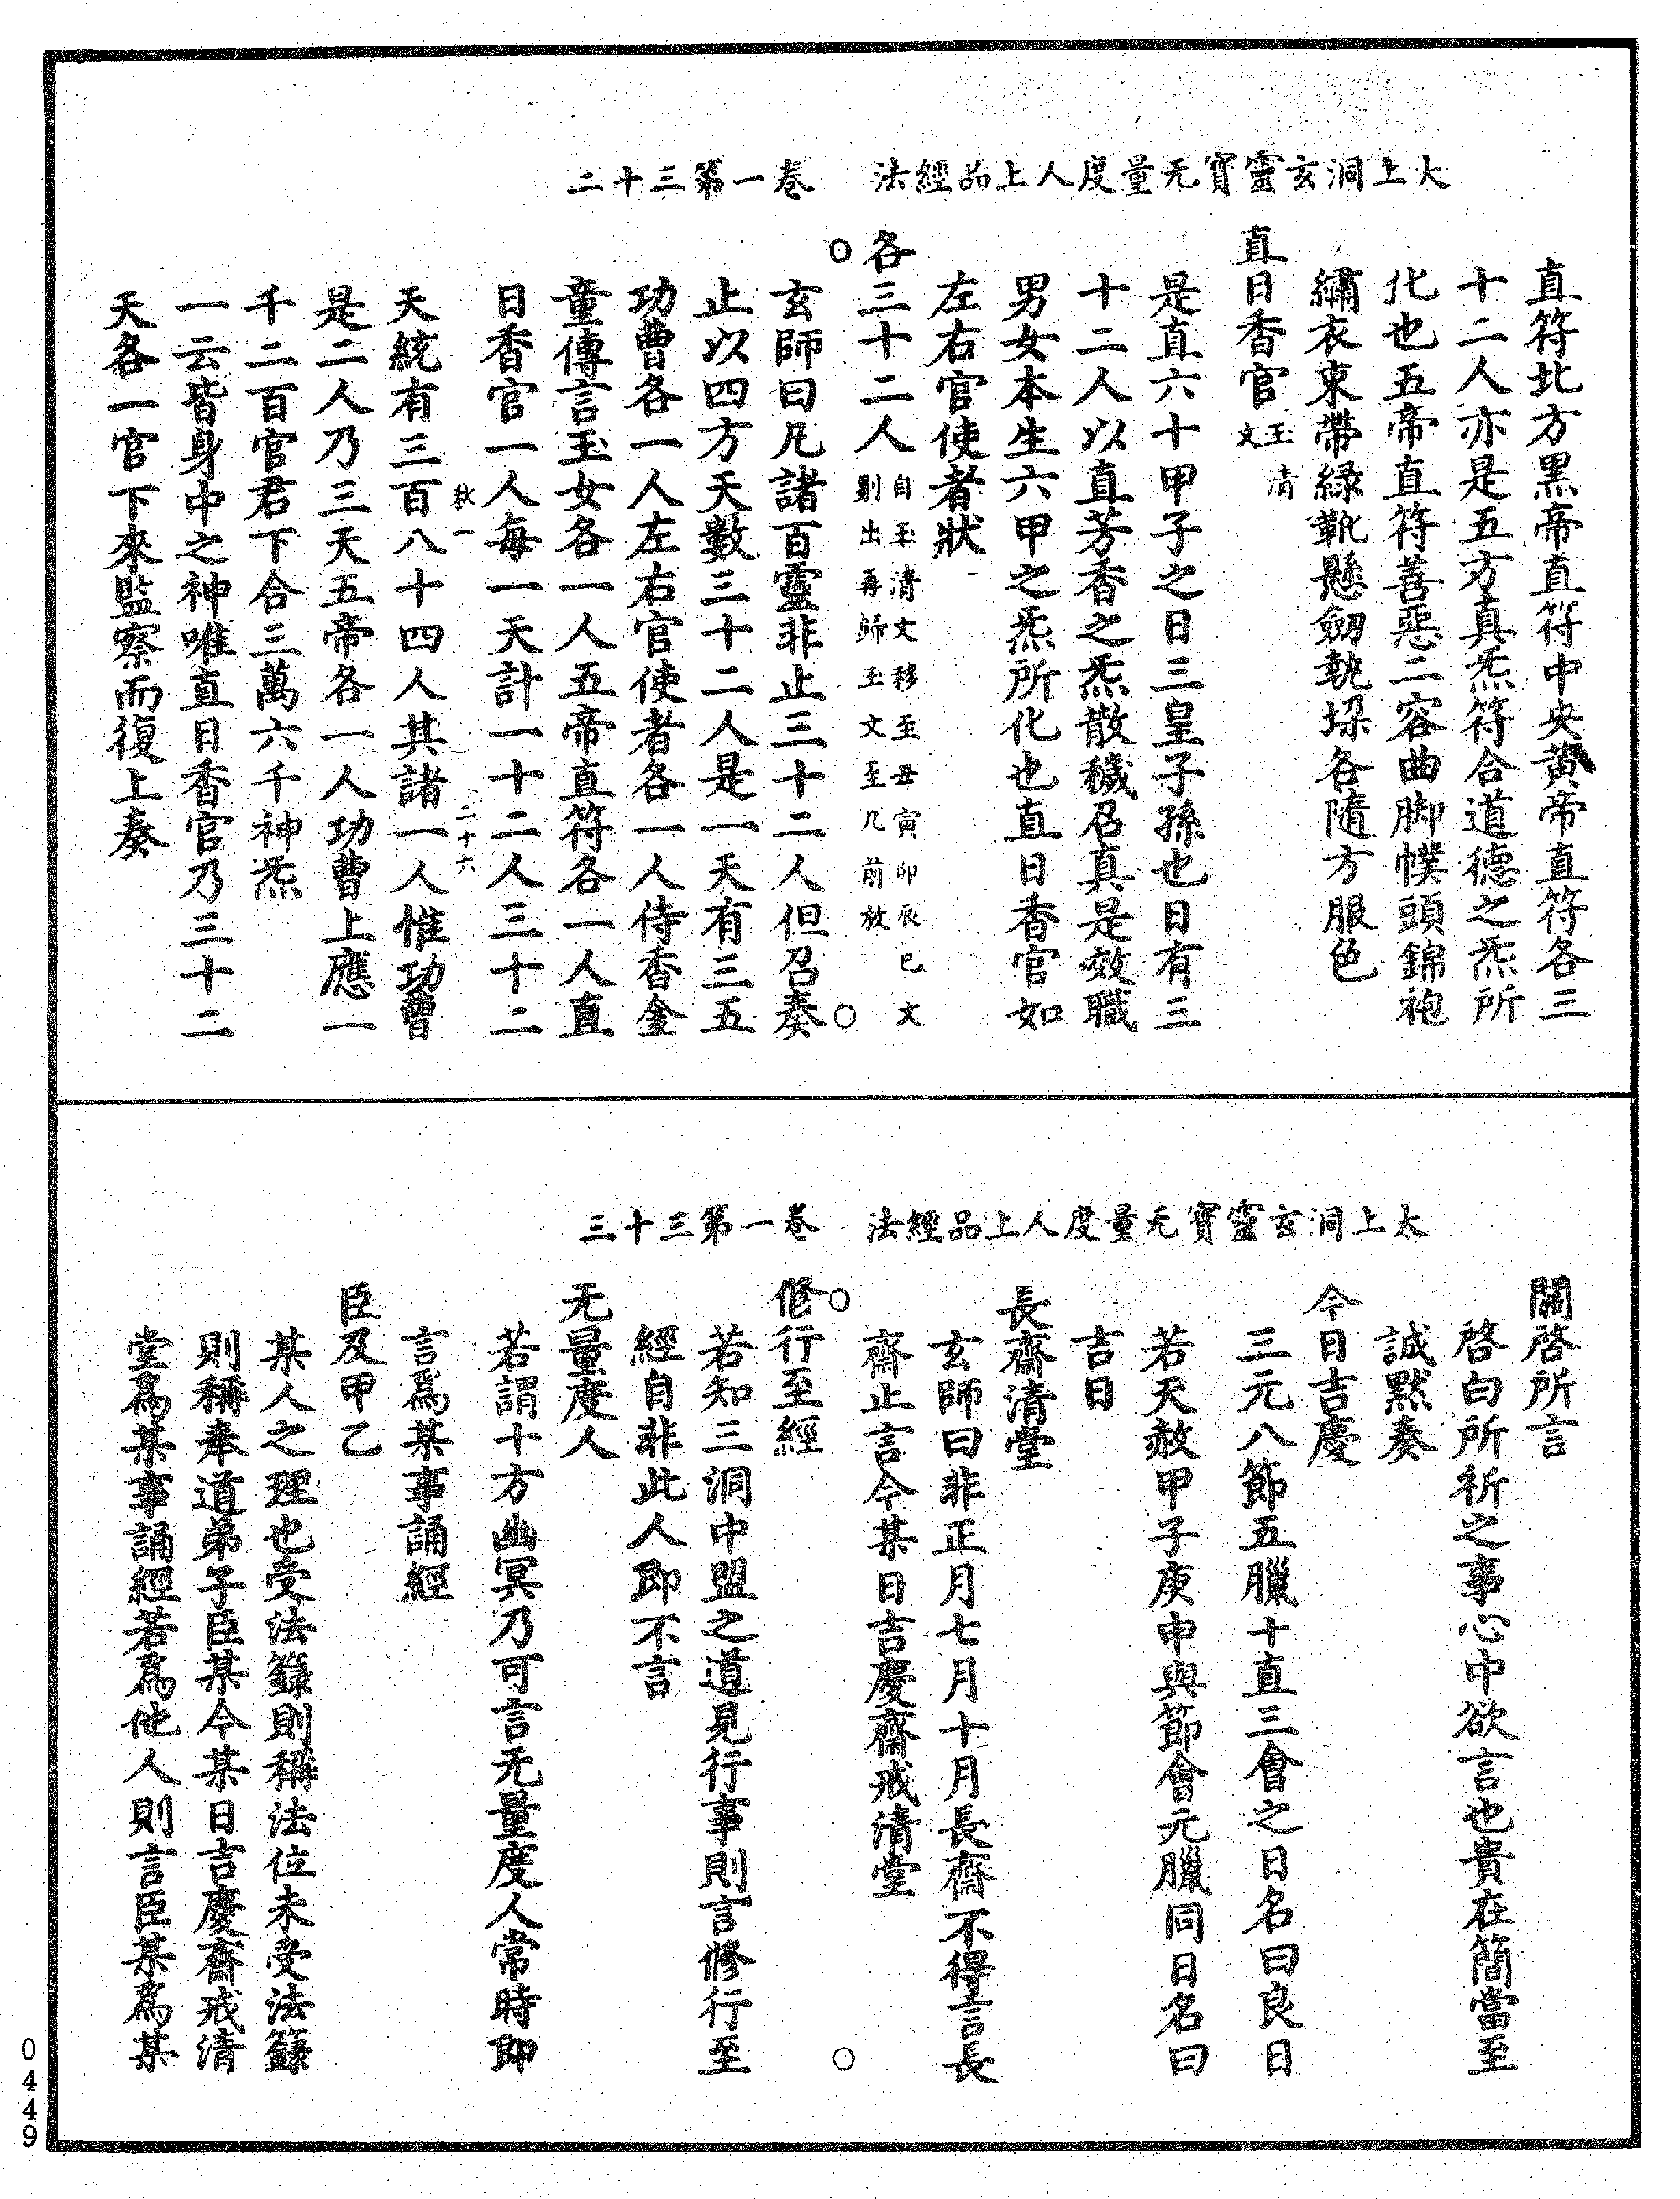 太上洞玄靈寶无量度人上品經法　卷一第三十二
直符北方黑帝直符中央黄帝直符各三
十二人亦是五方真炁符合道德之炁所
化也五帝直符善惡二容曲脚幞頭錦袍
繡衣束帶緑靴懸劒執𣗥各隨方服色
直日香官玉清文
是直六十甲子之日三皇子孫也日有三
十二人以直芳香之炁散穢召真是效職
男女本生六甲之炁所化也直日香官如
左右官使者狀
各三十二人自玉清文移至丑寅卯辰巳文
别出再歸玉文至几前放
玄師曰凡諸百靈非止三十二人但召奏
止以四方天數三十二人是一天有三五
功曹各一人左右官使者各一人侍香金
童傳言玉女各一人五帝直符各一人直
日香官一人每一天計一十二人三十二
秋一　二十六
天統有三百八十四人其諸一人惟功曹
是二人乃三天五帝各一人功曹上應一
千二百官君下合三萬六千神炁
一云皆身中之神唯直日香官乃三十二
天各一官下來監察而復上奏
太上洞玄靈寶无量度人上品經法　卷一第三十三
關啓所言
啓白所祈之事心中欲言也貴在簡當至
誠黙奏
今日吉慶
三元八節五臘十直三會之日名曰良日
若天赦甲子庚申與節會元臘同日名曰
吉日
長齋清堂
玄師曰非正月七月十月長齋不得言長
齋止言今某日吉慶齋戒清堂
修行至經
若知三洞中盟之道見行事則言修行至
經自非此人即不言
无量度人
若謂十方幽冥乃可言无量度人常時即
言爲某事誦經
臣及甲乙
某人之理也受法籙則稱法位未受法籙
則稱奉道弟子臣某今某日吉慶齋戒清
堂爲某事誦經若爲他人則言臣某爲某
0449